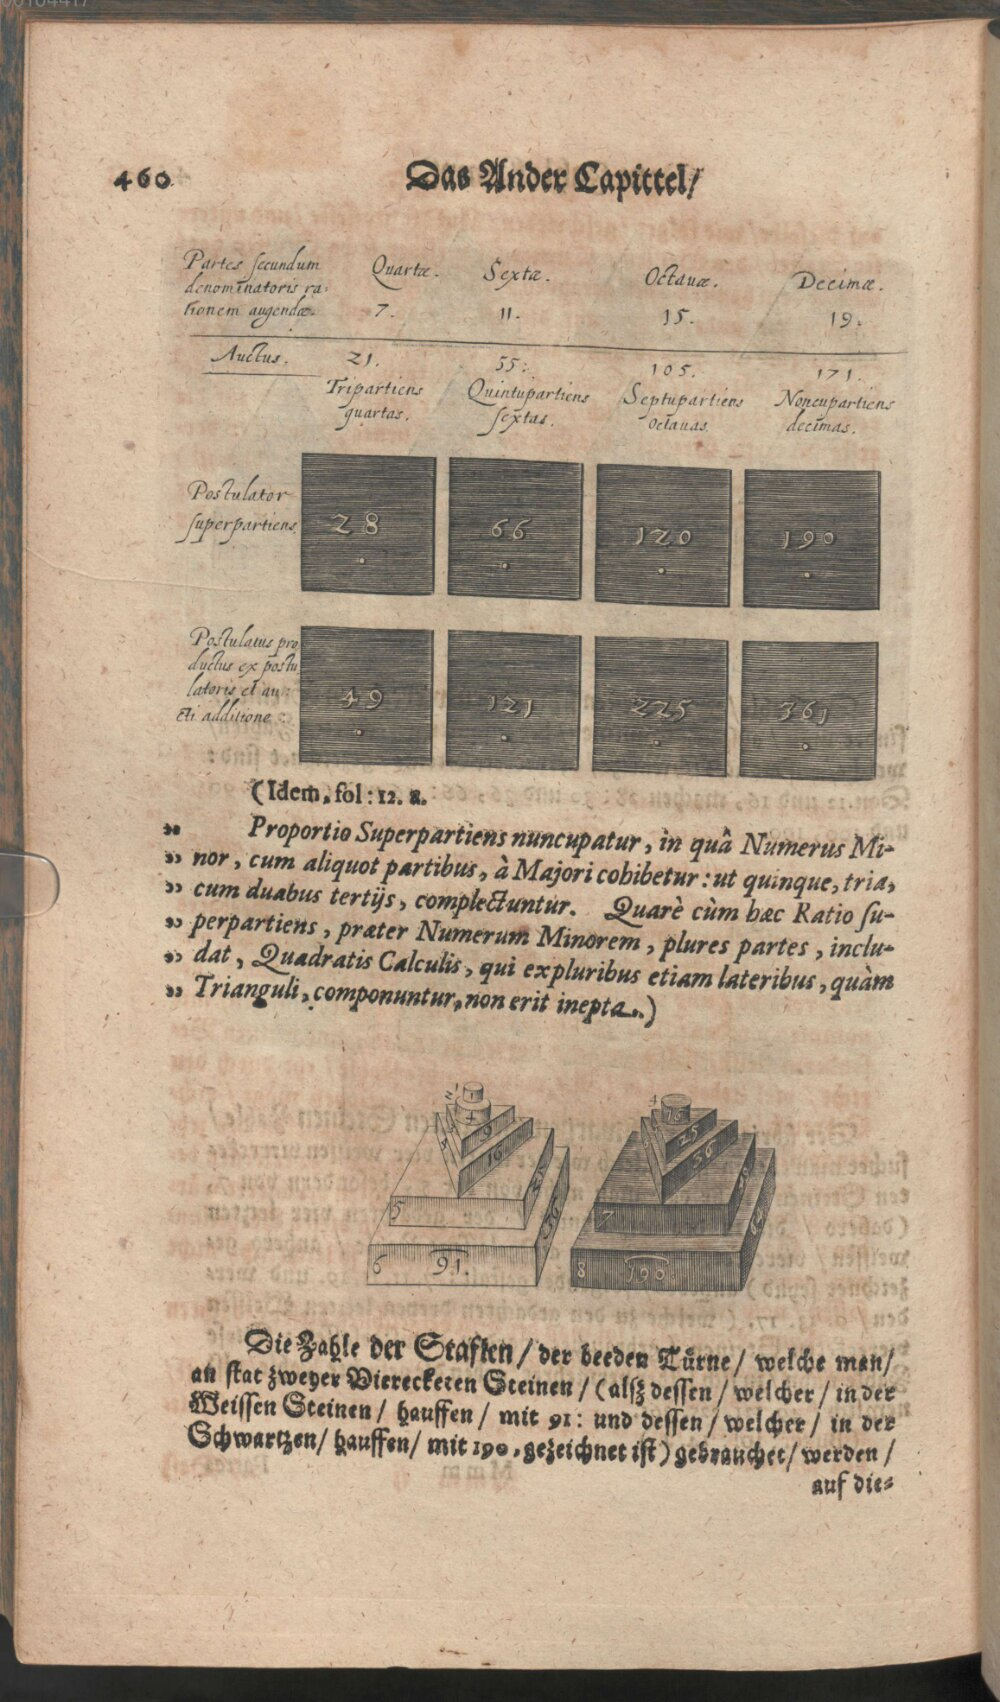 460
Das Ander Capittel/
Partes secundum
denominatoris ra-
tionem augendæ.
Quartæ. Sextæ. Octauæ. Decimæ.
7. 11. 15. 19.
Auctus. 21. 55: 105. 171.
Tripartiens Quintupartiens Septupartiens Noncupartiens
quartas. sextas. octauas. decimas.
Postulator
superpartiens
28 66 120 190
Postulatus pro
ductus ex postu
latoris et au:
cti additione:
49 121 225 361
(Idem, fol: 12. a.
„ Proportio Superpartiens nuncupatur, in quâ Numerus Mi-
„ nor, cum aliquot partibus, à Majori cohibetur: ut quinque, tria,
„ cum duabus tertijs, complectuntur. Quarè cùm hæc Ratio su-
„ perpartiens, præter Numerum Minorem, plures partes, inclu-
„ dat, Quadratis Calculis, qui expluribus etiam lateribus, quàm
„ Trianguli, componuntur, non erit inepta..)
1
4
9
16
5
6 91
4
16
25
36
7
8 190
Die Zahle der Staflen / der beeden Türne / welche man /
an stat zweyer Vierecketen Steinen / (alsz dessen / welcher / in der
Weissen Steinen / hauffen / mit 91: und dessen / welcher / in der
Schwartzen / hauffen / mit 190, gezeichnet ist) gebrauchet / werden /
auf die=